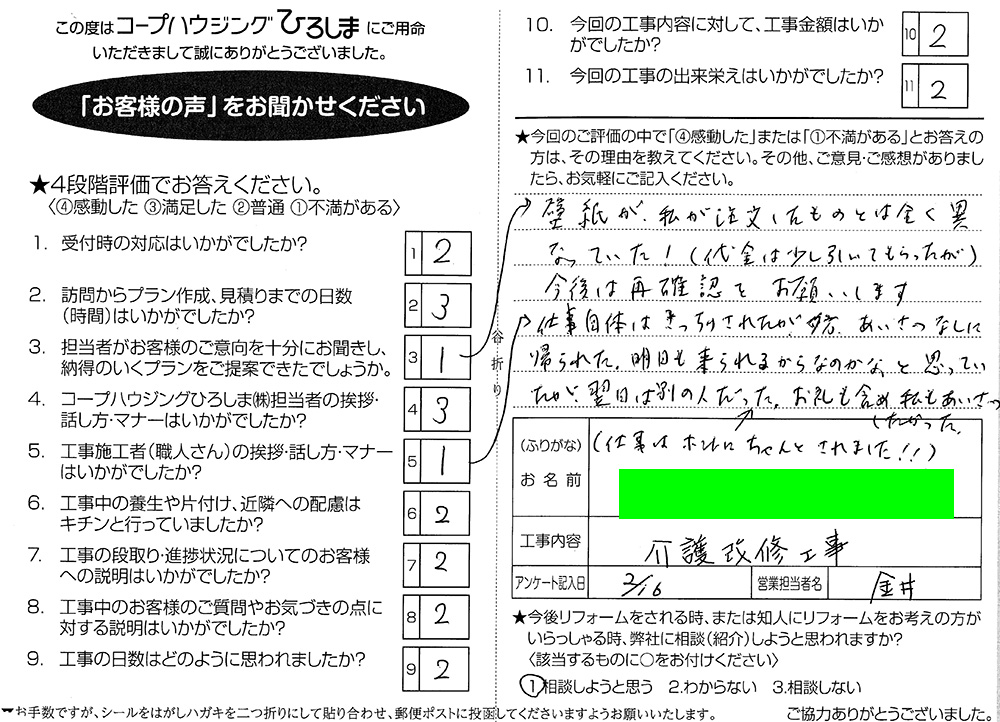 この度はコープハウジングひろしまにご用命
いただきまして誠にありがとうございました。
「お客様の声」をお聞かせください
★4段階評価でお答えください。
〈④感動した ③満足した ②普通 ①不満がある〉
1. 受付時の対応はいかがでしたか?
1 2
2. 訪問からプラン作成、見積りまでの日数
（時間）はいかがでしたか?
2 3
3. 担当者がお客様のご意向を十分にお聞きし、
納得のいくプランをご提案できたでしょうか。
3 1
4. コープハウジングひろしま㈱担当者の挨拶・
話し方・マナーはいかがでしたか?
4 3
5. 工事施工者（職人さん）の挨拶・話し方・マナー
はいかがでしたか?
5 1
6. 工事中の養生や片付け、近隣への配慮は
キチンと行っていましたか?
6 2
7. 工事の段取り・進捗状況についてのお客様
への説明はいかがでしたか?
7 2
8. 工事中のお客様のご質問やお気づきの点に
対する説明はいかがでしたか?
8 2
9. 工事の日数はどのように思われましたか?
9 2
▼お手数ですが、シールをはがしハガキを二つ折りにして貼り合わせ、郵便ポストに投函してくださいますようお願いいたします。
谷折り
10. 今回の工事内容に対して、工事金額はいか
がでしたか?
10 2
11. 今回の工事の出来栄えはいかがでしたか?
11 2
★今回のご評価の中で「④感動した」または「①不満がある」とお答えの
方は、その理由を教えてください。その他、ご意見・ご感想がありまし
たら、お気軽にご記入ください。
壁紙が、私が注文したものとは全く異
なっていた!（代金は少し引いてもらったが）
今後は再確認を お願いします
仕事自体はきっちりされたが あいさつなしに
帰られた。明日も来られるからなのかな、と思ってい
たが、翌日は別の人だった。お礼も含め私もあいさつ
したかった。
（仕事はホントにちゃんとされました!!）
（ふりがな）
お名前
工事内容 介護改修工事
アンケート記入日 2/16 営業担当者名 金井
★今後リフォームをされる時、または知人にリフォームをお考えの方が
いらっしゃる時、弊社に相談（紹介）しようと思われますか?
〈該当するものに○をお付けください〉
1.相談しようと思う 2.わからない 3.相談しない
ご協力ありがとうございました。